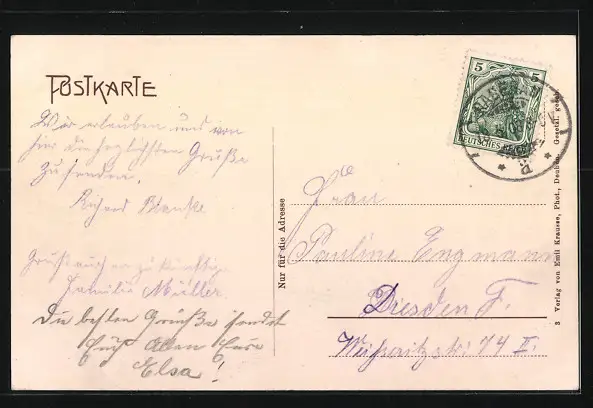 POSTKARTE
Wir erlauben uns von
hier die herzlichsten Grüße
zu senden.
Richard
Familie Müller.
Die besten Grüße sendet
Euch Allen Eure
Elsa!
Nur für die Adresse
Frau
Pauline Engmann
Dresden F.
Weißeritzstr. 74 II.
5 5
DEUTSCHES REICH
3 Verlag von Emil Krausse, Phot., Deuben. Gesetzl. gesch.